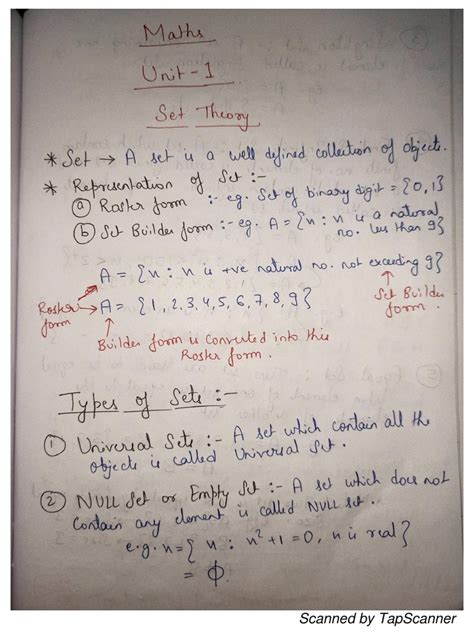 Maths
Unit - 1
Set Theory
* Set → A set is a well defined collection of objects.
* Representation of Set :-
ⓐ Roster form :- eg. Set of binary digit = {0, 1}
ⓑ Set Builder form :- eg. A = {n : n is a natural
no. less than 9}
A = {n : n is +ve natural no. not exceeding 9}
Roster form → A = {1, 2, 3, 4, 5, 6, 7, 8, 9}
Set Builder form.
Builder form is converted into this
Roster form.
Types of Sets :-
① Universal Sets :- A set which contain all the
objects is called Universal Set.
② NULL Set or Empty Set :- A set which does not
contain any element is called NULL set.
e.g. n = { n : n²+1 = 0, n is real}
= ϕ.
Scanned by TapScanner